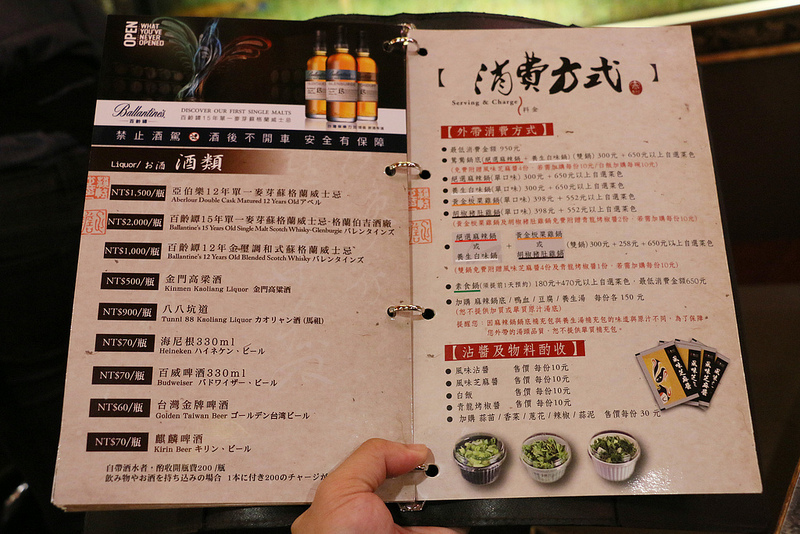 OPEN WHAT YOU'VE NEVER OPENED
Ballantine's
百齡罈
DISCOVER OUR FIRST SINGLE MALTS
百齡罈15年單一麥芽蘇格蘭威士忌
禁止酒駕 酒後不開車 安全有保障
Liquor/お酒 酒類
NT$1,500/瓶 亞伯樂12年單一麥芽蘇格蘭威士忌
Aberlour Double Cask Matured 12 Years Old アベル
NT$2,000/瓶 百齡罈15年單一麥芽蘇格蘭威士忌-格蘭伯吉酒廠
Ballantine's 15 Years Old Single Malt Scotch Whisky-Glenburgie バレンタインズ
NT$1,000/瓶 百齡罈12年金璽調和式蘇格蘭威士忌
Ballantine's 12 Years Old Blended Scotch Whisky バレンタインズ
NT$500/瓶 金門高粱酒
Kinmen Kaoliang Liquor 金門高粱酒
NT$900/瓶 八八坑道
Tunnl 88 Kaoliang Liquor カオリャン酒 (馬祖)
NT$70/瓶 海尼根330ml
Heineken ハイネケン・ビール
NT$70/瓶 百威啤酒330ml
Budweiser バドワイザー・ビール
NT$60/瓶 台灣金牌啤酒
Golden Taiwan Beer ゴールデン台湾ビール
NT$70/瓶 麒麟啤酒
Kirin Beer キリン・ビール
自帶酒水者，酌收開瓶費200/瓶
飲み物やお酒を持ち込みの場合 1本に付き200のチャージが
【消費方式】
Serving & Charge 料金
【外帶消費方式】
● 最低消費金額 950元
● 鴛鴦鍋底(絕選麻辣鍋+養生白味鍋)(雙鍋) 300元 + 650元以上自選菜色
絕選麻辣鍋(單口味) 300元 + 650元以上自選菜色
● 養生白味鍋(單口味) 300元 + 650元以上自選菜色
● 黃金梭菜雞鍋(單口味) 398元 + 552元以上自選菜色
● 胡椒豬肚雞鍋(單口味) 398元 + 552元以上自選菜色
絕選麻辣鍋 或 養生白味鍋 + 黃金梭菜雞鍋 或 胡椒豬肚雞鍋 (雙鍋) 300元 + 258元 + 650元以上自選菜色
(雙鍋免費附贈風味芝麻醬4份及青龍烤椒醬1份，若需加購每份10元)
● 素食鍋(須提前1天預約) 180元+470元以上自選菜色，最低消費金額650元
● 加購 麻辣鍋底 / 鴨血 / 豆腐 / 養生湯 每份各 150 元
(恕不提供加買或單買原汁湯底)
提醒您：因麻辣鍋鍋底補充包與養生湯補充包的味道與原汁不同，為了保障
您外帶的湯頭品質，恕不提供單買補充包。
【沾醬及物料酌收】
● 風味沾醬 售價 每份10元
● 風味芝麻醬 售價 每份10元
● 白飯 售價 每份10元
● 青龍烤椒醬 售價 每份10元
● 加購 蒜苗 / 香菜 / 蔥花 / 辣椒 / 蒜泥 售價每份 30 元
風味芝麻醬
風味芝麻醬